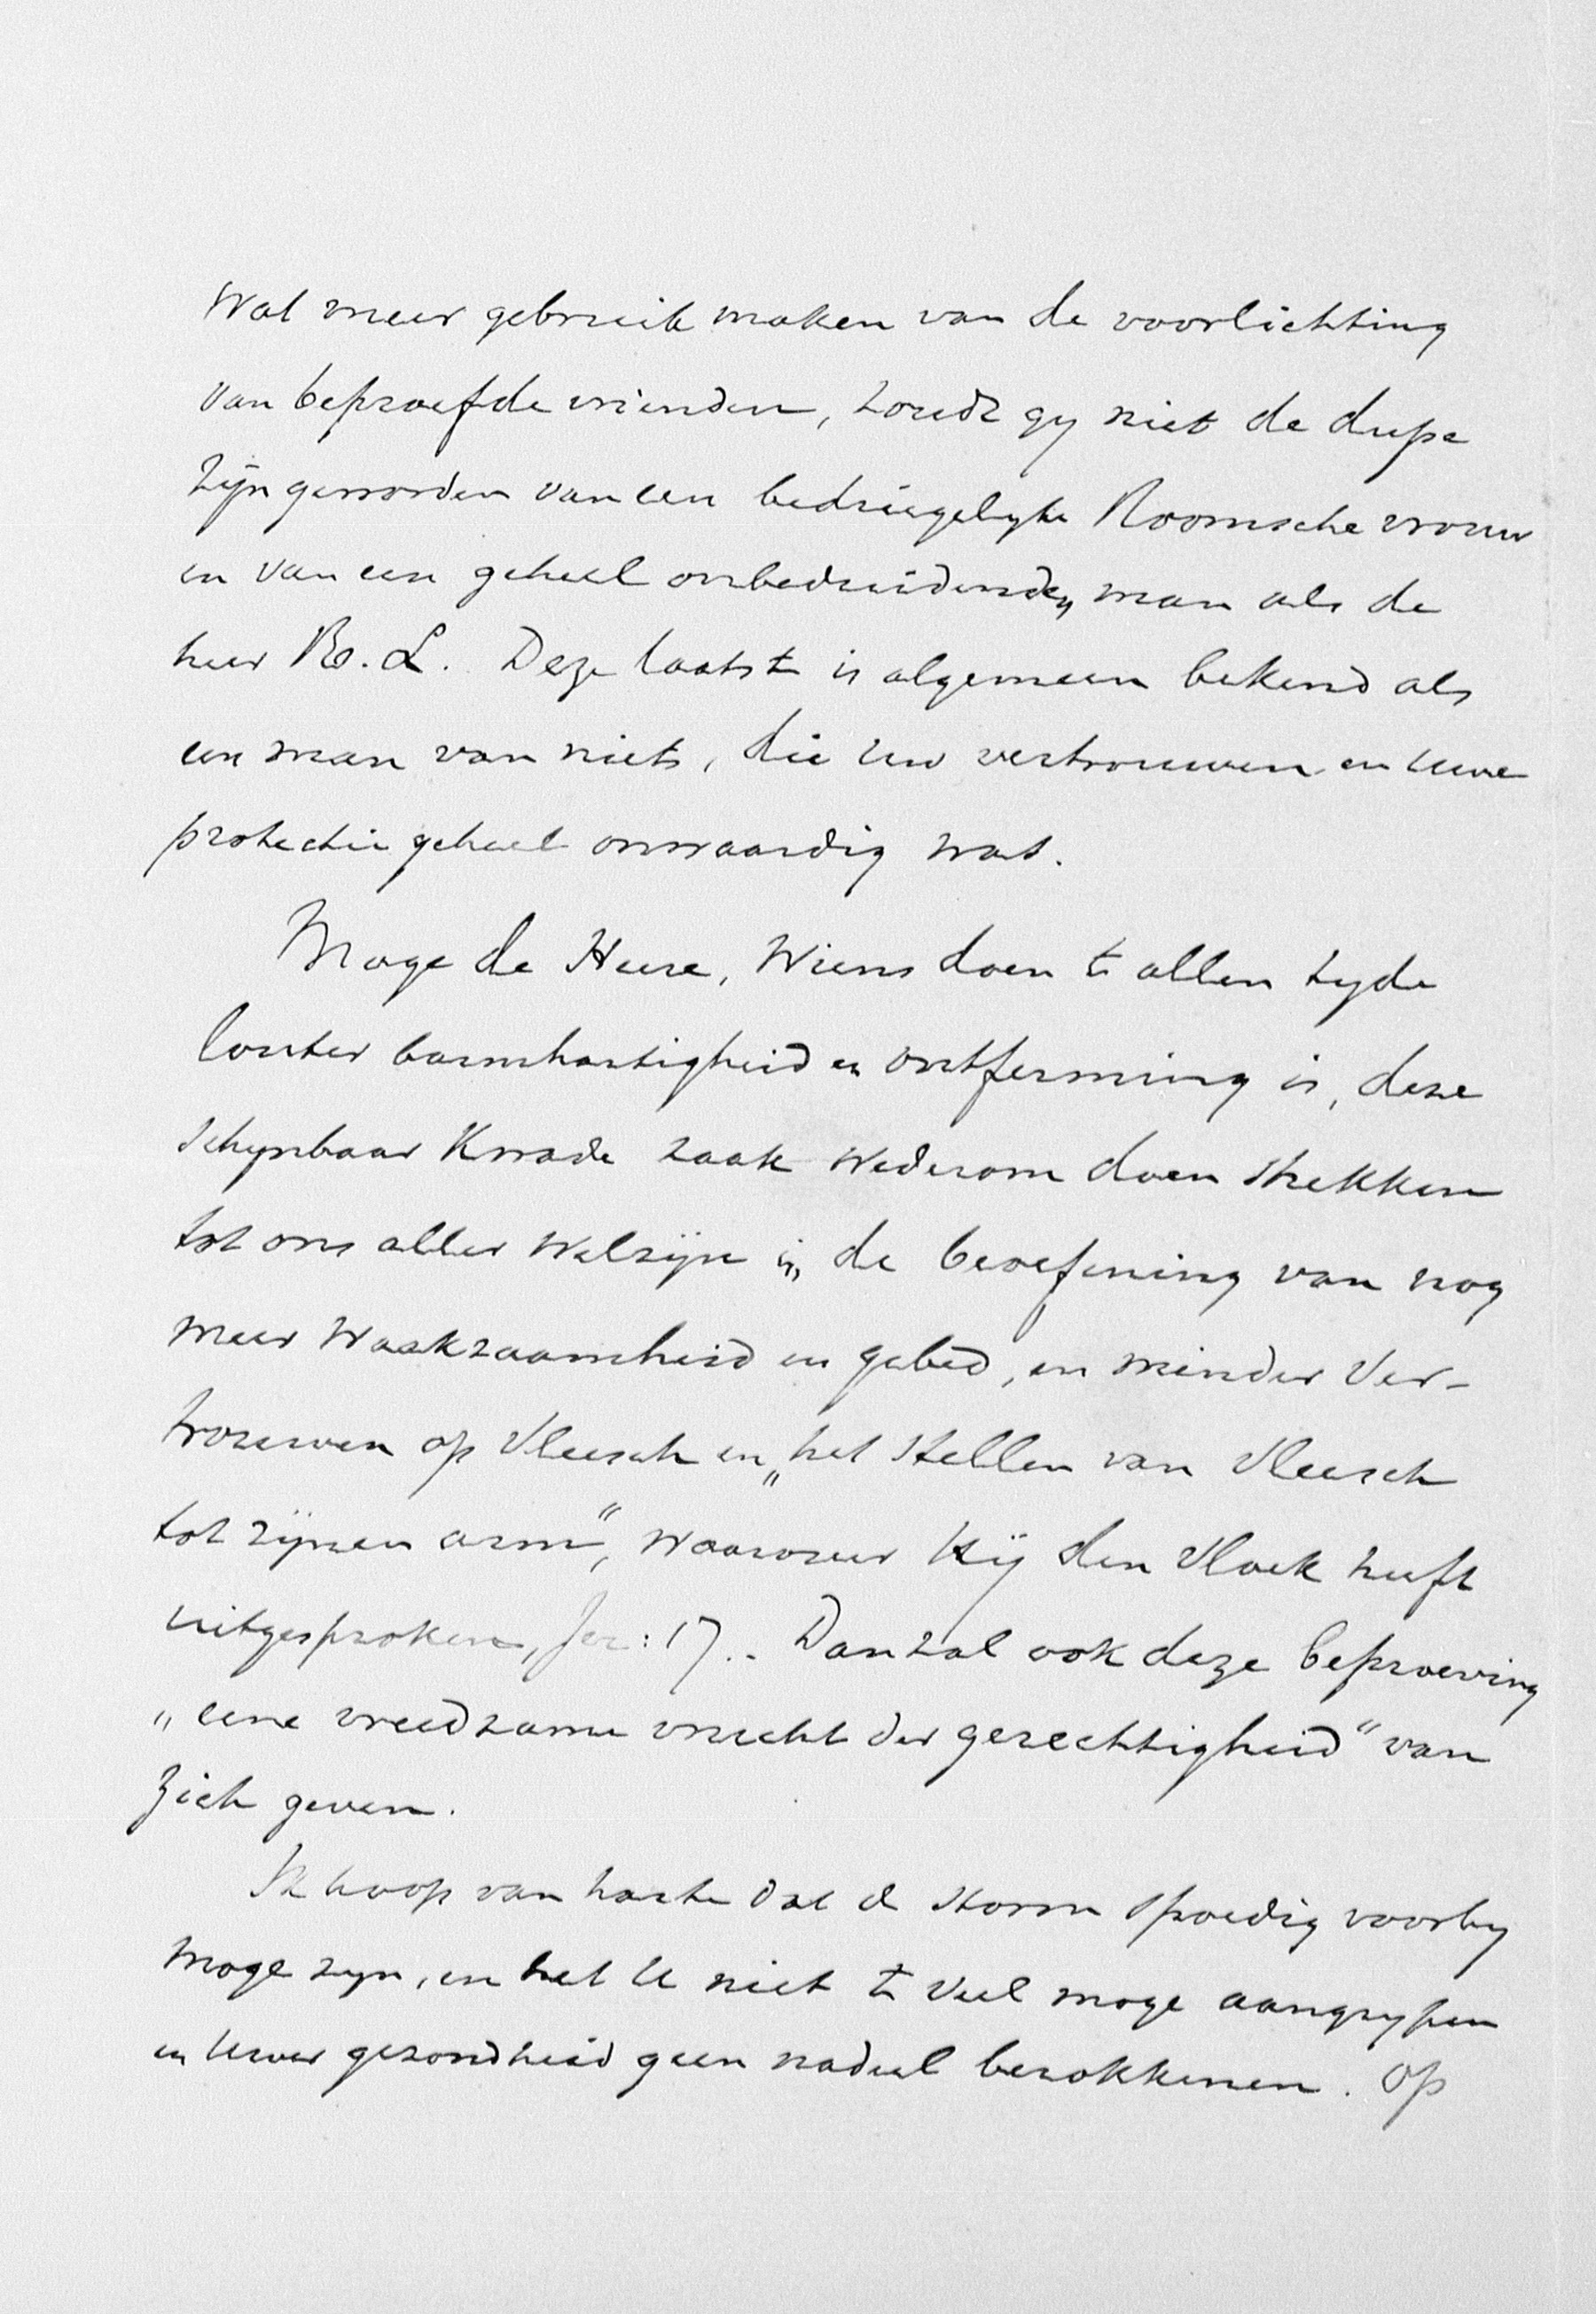 Wat meer gebruik maken van de voorlichting
van beproefde vrienden, zoudt gy niet de dupe
zijn geworden van een bedriegelyke Roomsche vrouw
en van een geheel onbeduidenden man als de
heer R. L. Deze laatste is algemeen bekend als
een man van niets, die Uw vertrouwen en Uwe
protectie geheel onwaardig was.
Moge de Heere, Wiens doen te allen tyde
louter barmhartigheid en ontferming is, deze
schynbaar kwade zaak wederom doen strekken
tot ons aller welzijn in de beoefening van nog
meer waakzaamheid en gebed, en minder ver-
trouwen op vleesch en „het stellen van vleesch
tot zijnen arm“, waarover Hij den vloek heeft
uitgesproken, Jer: 17.. Dan zal ook deze beproeving
„eene vreedzame vrucht der gerechtigheid“ van
zich geven.
Ik hoop van harte dat de storm spoedig voorby
moge zyn, en het U niet te veel moge aangrypen
en Uwer gezondheid geen nadeel berokkenen. Op